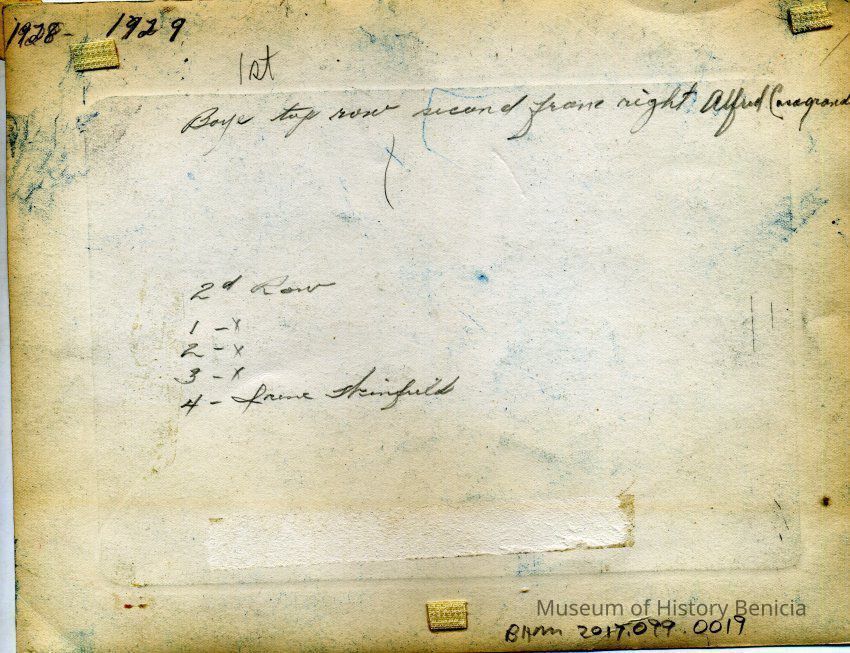 1928- 1929
1st
Boys top row second from right Alfred Casagrand
2d Row
1 - x
2 - x
3 - x
4 - Irene
Museum of History Benicia
BHM 2017.099.0019